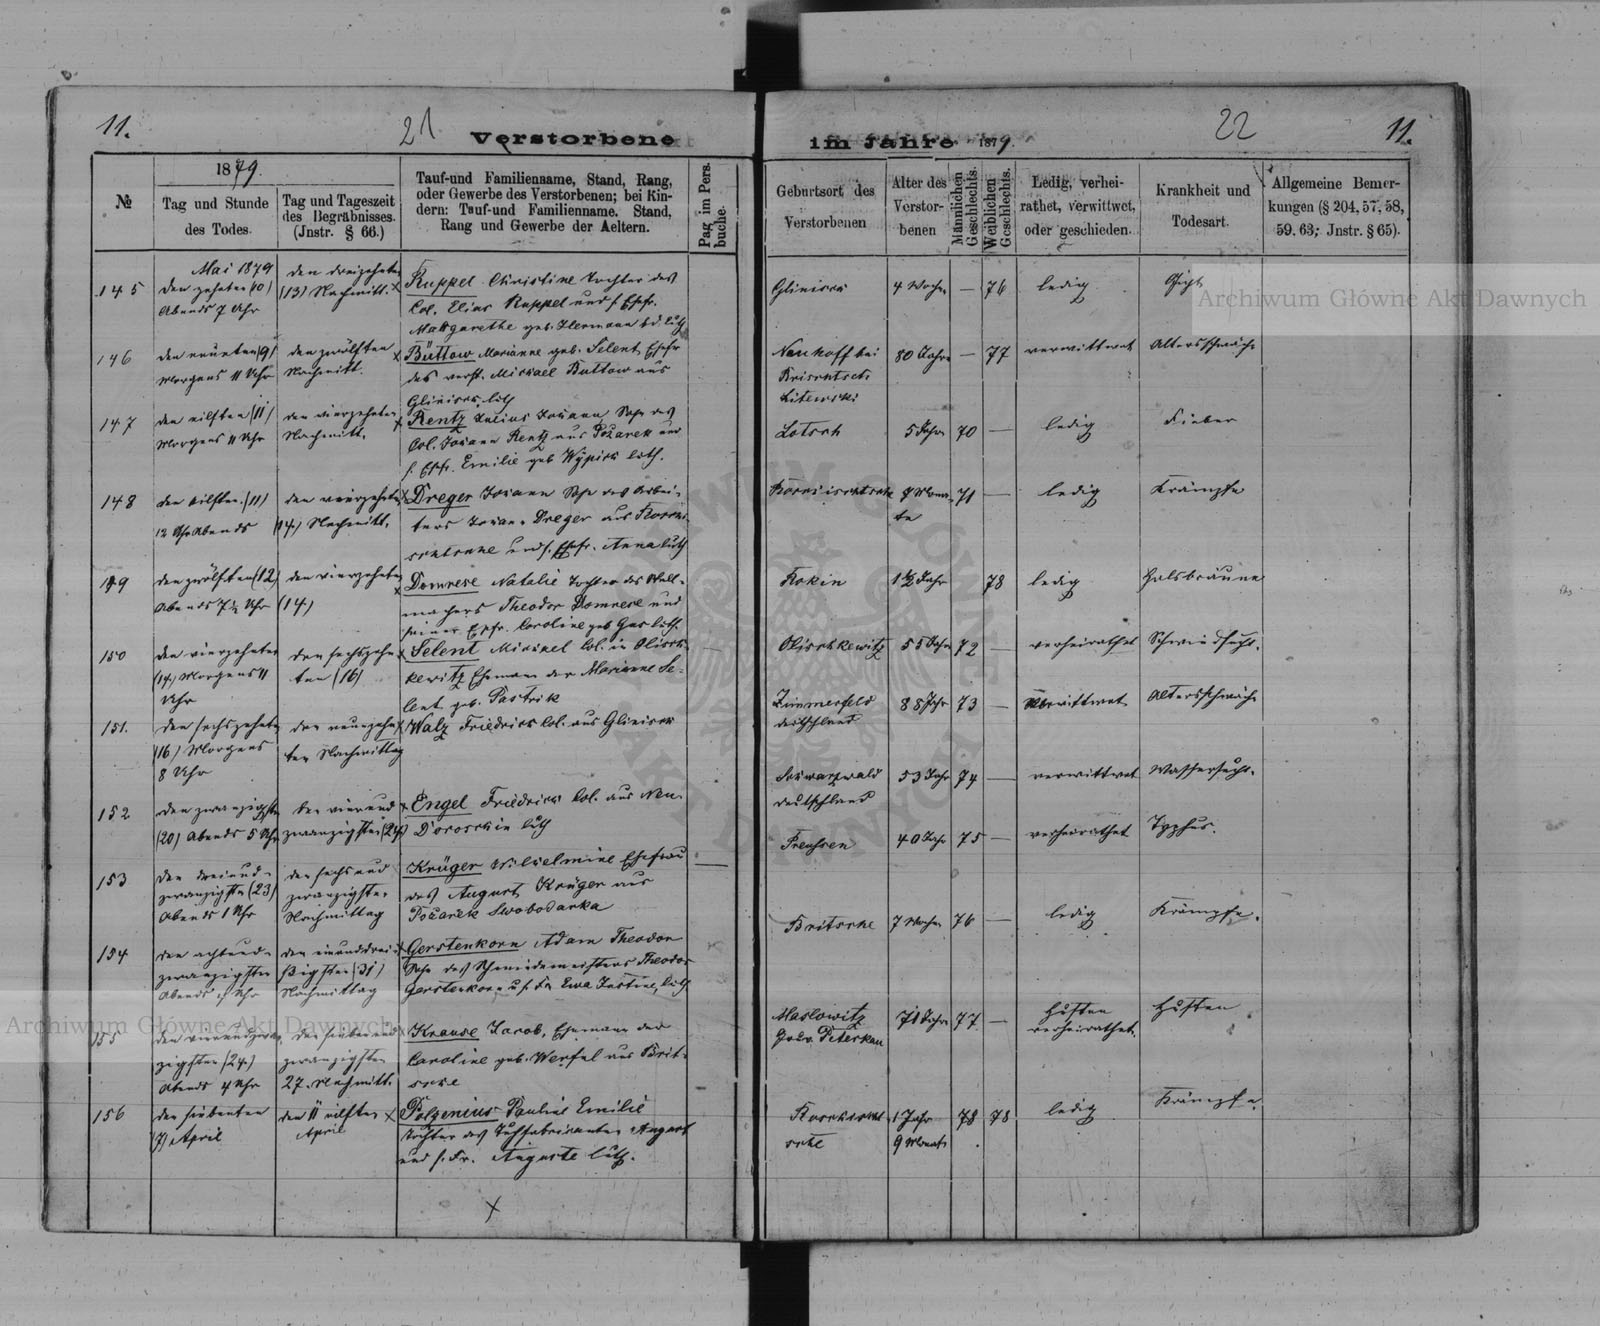 11.
21
Verstorbene
1879.
№
Tag und Stunde
des Todes.
Tag und Tageszeit
des Begräbnisses.
(Jnstr. § 66.)
Tauf-und Familienname, Stand, Rang,
oder Gewerbe des Verstorbenen; bei Kin-
dern: Tauf-und Familienname. Stand,
Rang und Gewerbe der Aeltern.
Pag im Pers.
buche.
145
Mai 1879
den zehnten (10)
Abends 7 Uhr
den dreizehnten
(13) Nachmitt. x
Ruppel Christine Tochter des
Col. Elias Ruppel und s. Ehefr.
Margarethe geb. Hermann luth
146
den neunten (9)
Morgens 11 Uhr
den zwölften x
Nachmitt.
Büttow Marianne geb. Selent Ehefr
des verst. Michael Buttow aus
Glinisch luth
147
den eilften (11)
Morgens 11 Uhr
den vierzehnten x
Nachmitt.
Rentz Julius Johann Sohn des
Col. Johann Rentz aus Požarek und
s. Ehefr. Emilie geb luth.
148
den eilften (11)
12 Uhr Abends
den vierzehnten x
(14.) Nachmitt.
Dreger Johann Sohn des Arbei-
ters Johann Dreger aus
und s. Ehefr. Anna luth
149
den zwölften (12)
Abends 7½ Uhr
den vierzehnten x
(14)
Domrese Natalie Tochter des
machers Theodor Domrese und
seiner Ehefr. Caroline geb luth.
150
den vierzehnten
(14.) Morgens 11
Uhr
den sechszehn- x
ten (16)
Selent Michael Col. in Olisch-
kewitz Ehemann der Marianne Se-
lent geb. Pastrik
151.
den sechszehnten
(16) Morgens
8 Uhr
den neunzehn- x
ten Nachmittag
Walz Friedrich Col. aus Glinisch
152
den zwanzigsten
(20) Abends 5 Uhr
den vierund- x
zwanzigsten (24)
Engel Friedrich Col. aus Neu-
Doroschin luth
153
den dreiund-
zwanzigsten (23)
Abends 1 Uhr
den sechsund
zwanzigsten
Nachmittag
Krüger Wilhelmine Ehefrau
des August Krüger aus
Požarek Swobodarka
154
den achtund-
zwanzigsten
Abends Uhr
den einunddrei- x
ßigsten (31)
Nachmittag
Gerstenkorn Adam Theodor
Sohn des Schmiedemeisters Theodor
Gerstenkorn u. s. Fr Ewa Justine, luth
155
den vierundzwan
zigsten (24.)
Abends 4 Uhr
den siebenund x
zwanzigsten
27. Nachmitt.
Krause Jacob, Ehemann der
Caroline geb. Werfel aus Brit-
sche
156
den siebenten
(7) April
den 11 eilften x
April
Polzenius Pauline Emilie
Tochter des Tuchfabricanten August
und s. Fr. Auguste luth.
x
22
11.
im Jahre 1879.
Geburtsort des
Verstorbenen
Alter des
Verstor-
benen
Männlichen
Geschlechts.
Weiblichen
Geschlechts.
Ledig, verhei-
rathet, verwittwet,
oder geschieden.
Krankheit und
Todesart.
Allgemeine Bemer-
kungen (§ 204, 57, 58,
59. 63; Jnstr. § 65).
Glinisch 4 Wochn — 76 ledig Gicht
Neuhoff bei 80 Jahre — 77 verwittwet Altersschwäche
Litewski
Lotsch 5 Jahr 70 — ledig Fieber
Mona- 71 — ledig Krämpfe
te
Rokin 1½ Jahr 78 ledig Halsbräune
Olischkewitz 55 Jahr 72 — verheirathet Schwindsucht.
Zimmerfeld 88 Jahr 73 — verwittwet Altersschwäche
Deutschland
Schwarzwald 53 Jahr 74 — verwittwet Wassersucht.
Deutschland
Preussen 40 Jahr 75 — verheirathet Typhus.
Britsche 7 Wochn 76 — ledig Krämpfe.
Maslowitz 71 Jahre 77 — Husten Husten
Gouv. Peterkau verheirathet.
1 Jahr 78 78 ledig Krämpfe
9 Monat
Archiwum Główne Akt Dawnych
Archiwum Główne Akt Dawnych
ARCHIWUM GŁÓWNE AKT DAWNYCH